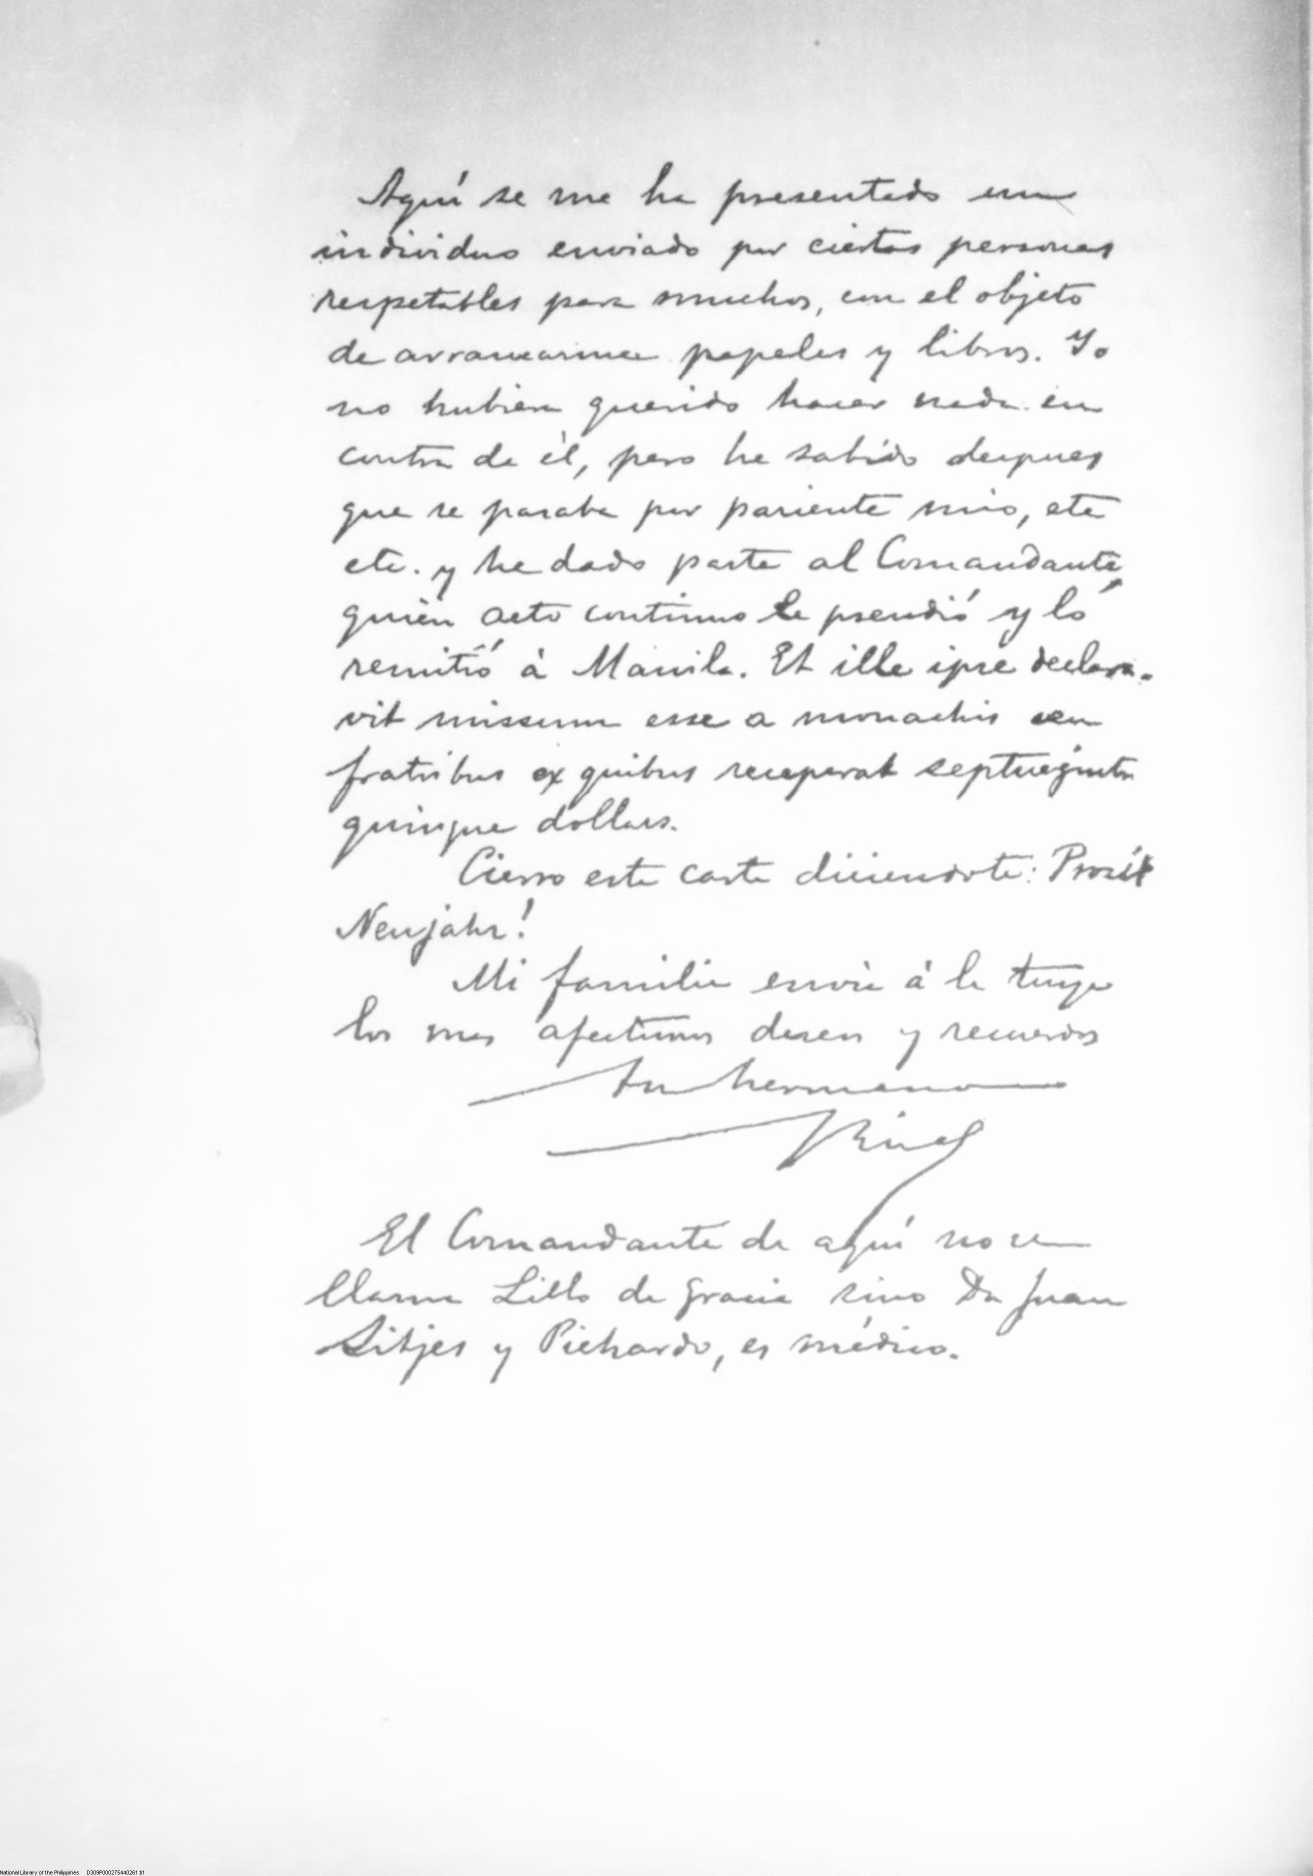 Aquí se me ha presentado un
individuo enviado por ciertas personas
respetables para muchos, con el objeto
de arrancarme papeles y libros. Yo
no hubiera querido hacer nada en
contra de él, pero he sabido despues
que se pasaba por pariente mio, etc
etc. y he dado parte al Comandante,
quien acto continuo le prendió y lo
remitió á Manila. Et ille ipse declara-
vit missum esse a monachis seu
fratribus ex quibus receperat septuaginta
quinque dollars.
Cierro esta carta diciendote: Prosit
Neujahr!
Mi familia envia á la tuya
los mas afectuosos deseos y recuerdos
tu hermano
Rizal
El Comandante de aquí no se
llama Lillo de Gracia sino Dn Juan
Sitjes y Pichardo, es médico.
National Library of the Philippines D309P000275440261.tif